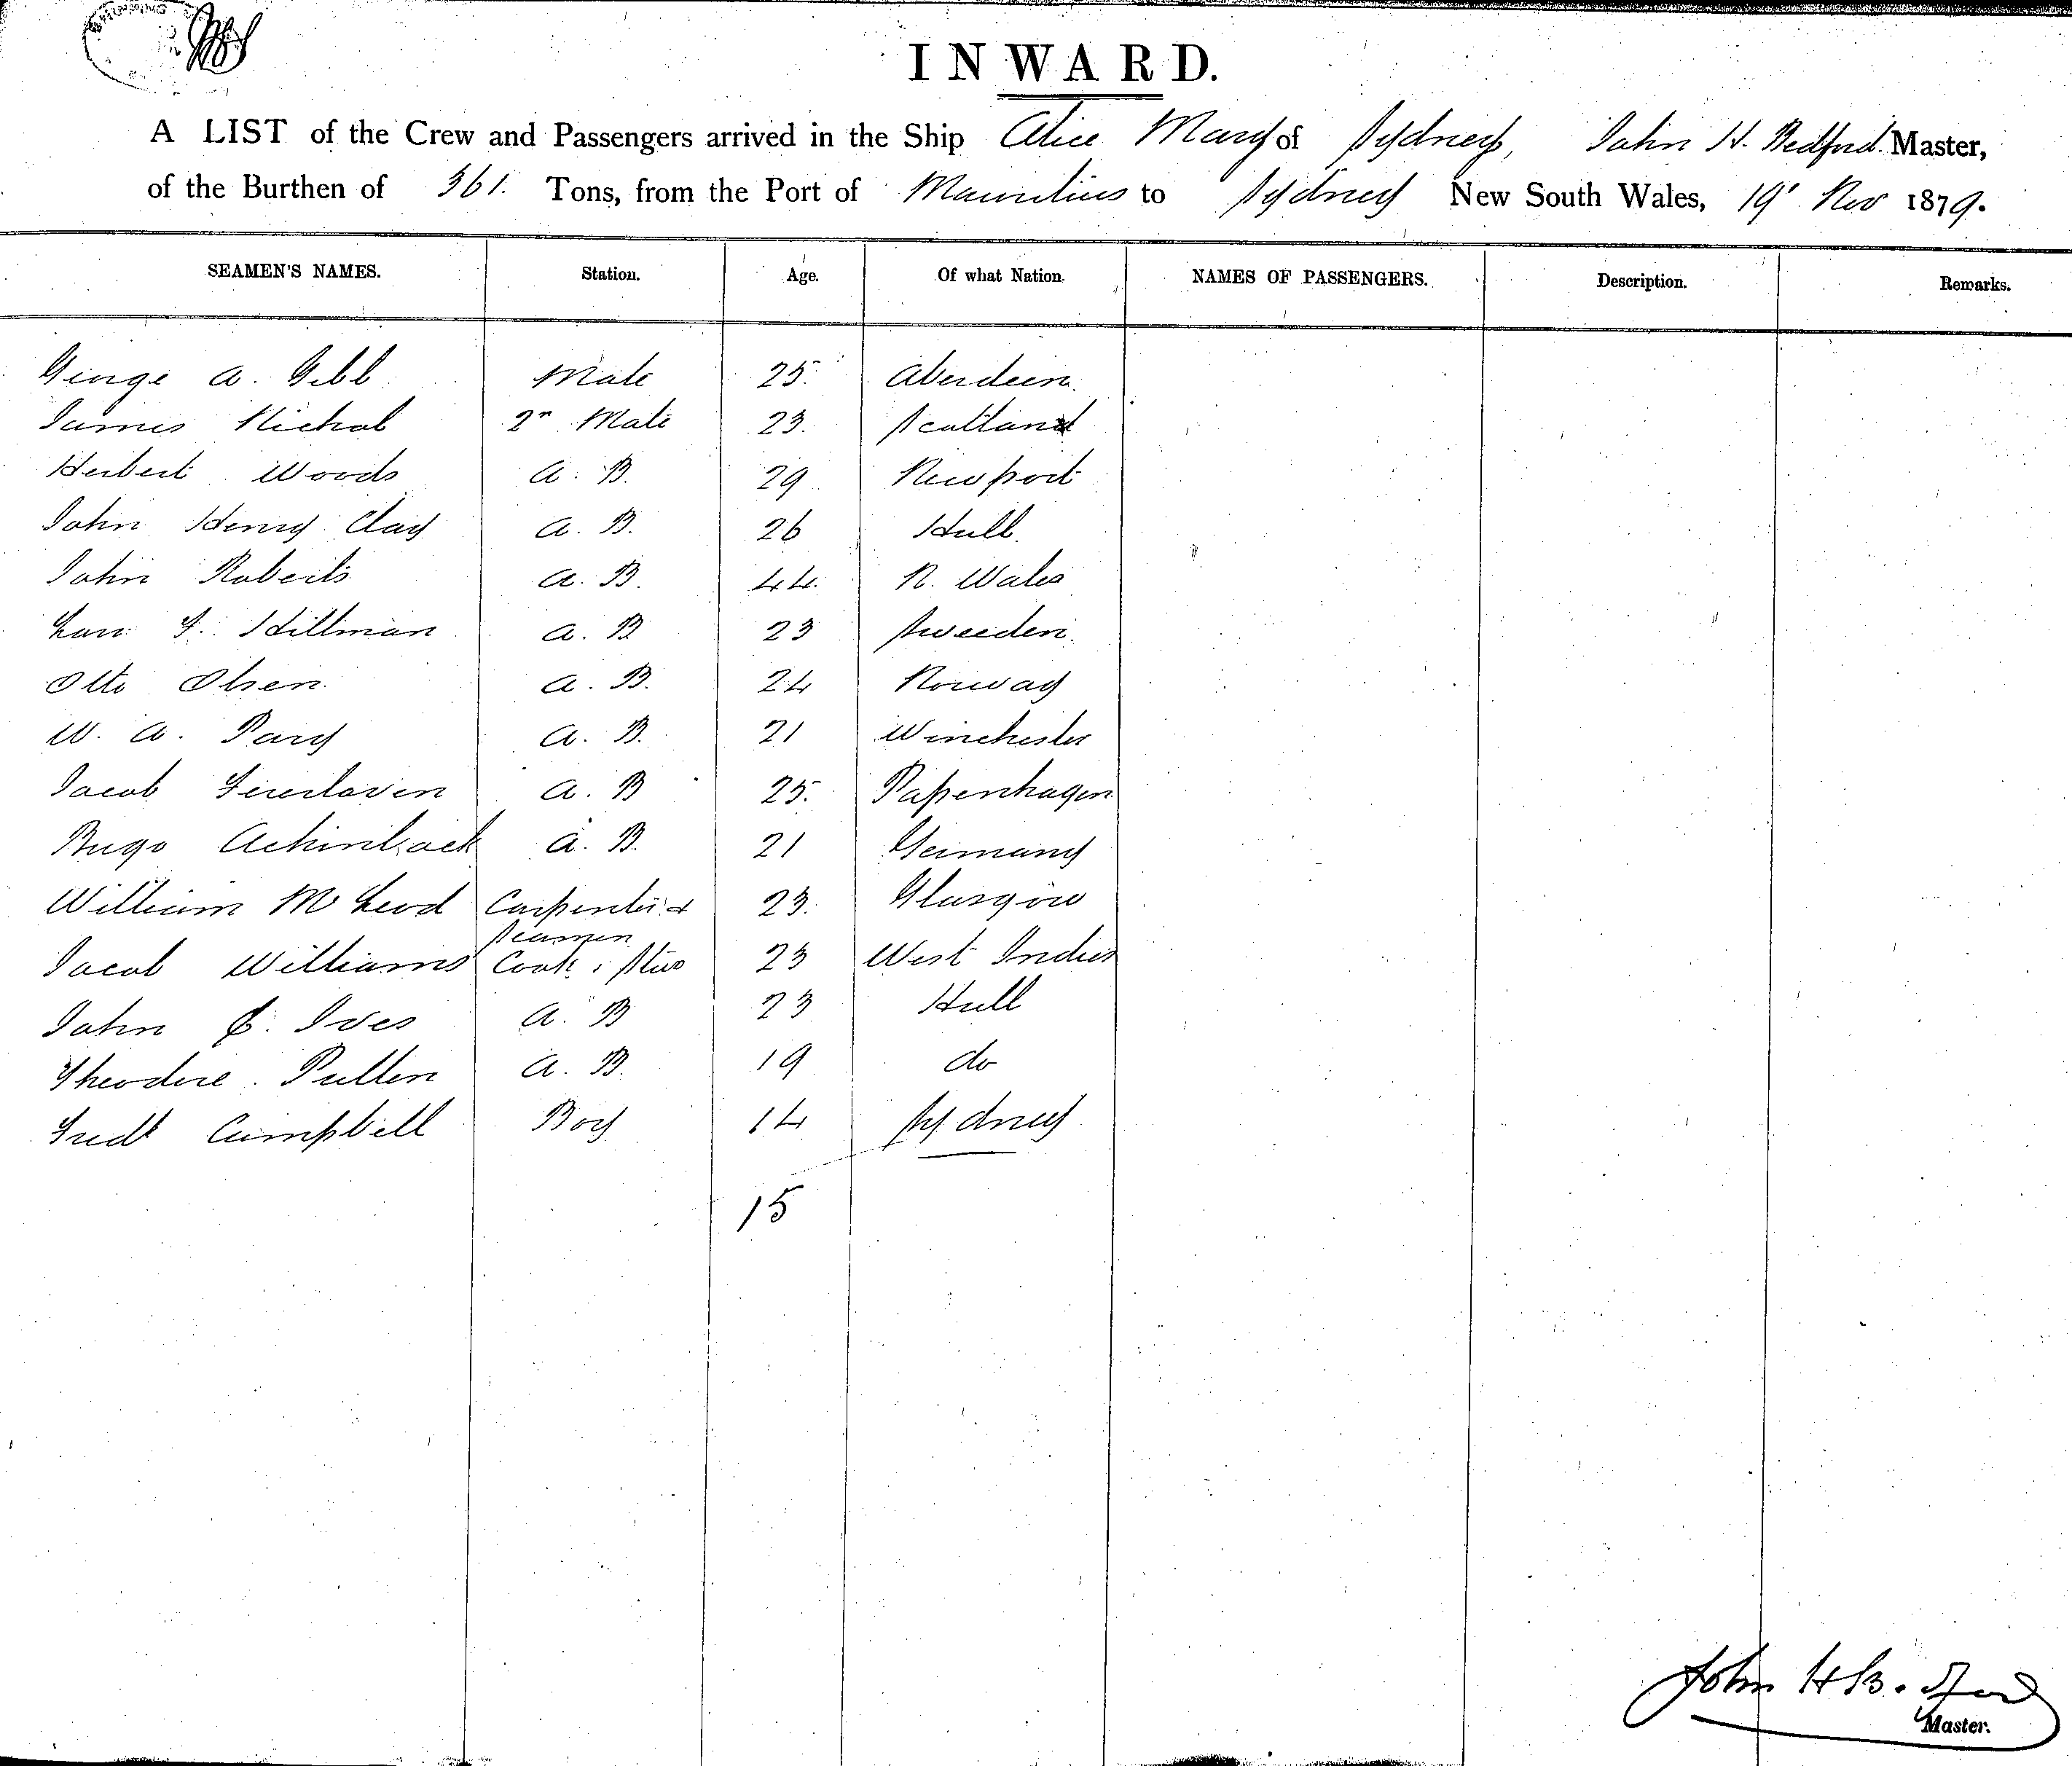 SHIPPING
INWARD.
A LIST of the Crew and Passengers arrived in the Ship Alice Mary of Sydney, John H. Bedford Master,
of the Burthen of 361 Tons, from the Port of Mauritius to Sydney New South Wales, 19' Nov 1879.
SEAMEN'S NAMES. Station. Age. Of what Nation. NAMES OF PASSENGERS. Description. Remarks.
George A. Gibb Mate 25. Aberdeen.
James Nichol 2n Mate 23. Scotland
Herbert Woods A. B. 29 Newport
John Henry Clay A. B. 26 Hull.
John Roberts A. B. 44. N. Wales
F. Hillman A. B 23 Sweeden.
Otto Olsen. A. B. 24 Norway
W. A. Pary A. B. 21 Winchester
Jacob A. B 25. Papenhagen
A. B. 21 Germany
William McLeod Carpenter & 23. Glasgow
Seaman
Jacob Williams Cook & Stew 23 West Indies
John C. Ives A. B 23 Hull
Theodore. Pullen A. B. 19 do
Fredk Campbell Boy 14 Sydney
15
John H Bedford
Master.